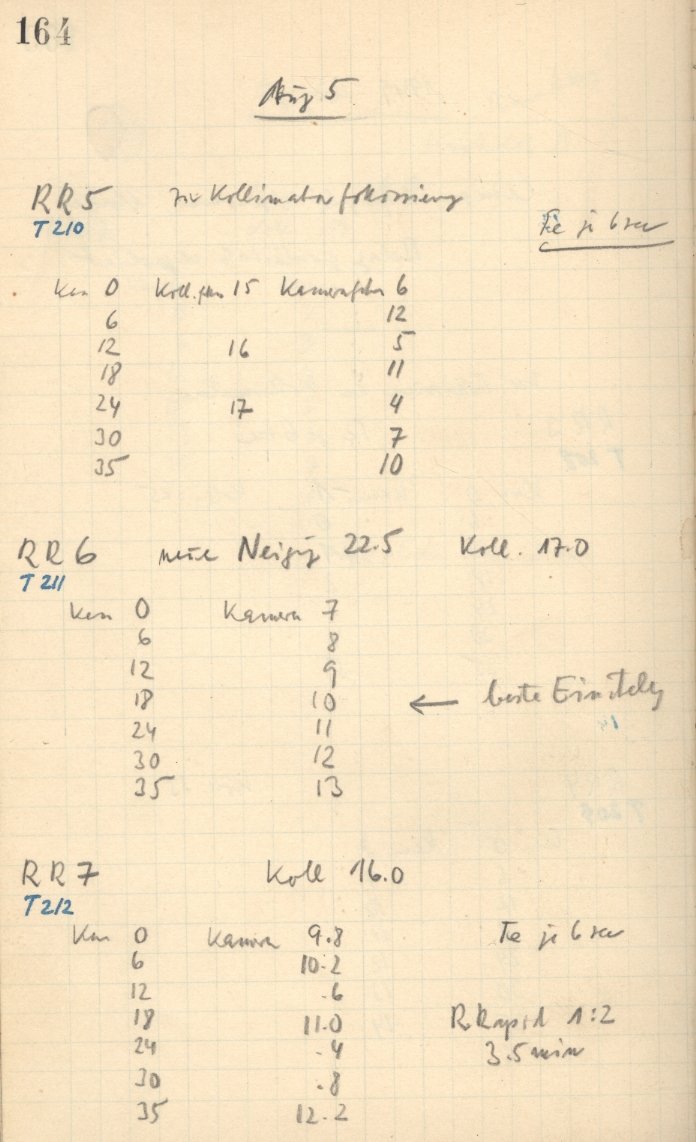 164
Aug 5
RR5 zur Kollimatorfokussierung
T210
Fe je 6 sec
Km 0 Koll. 15 Kamera 6
6 12
12 16 5
18 11
24 17 4
30 7
35 10
RR6 neue Neigung 22.5 Koll. 17.0
T211
Km 0 Kamera 7
6 8
12 9
18 10 ← beste Einstellg
24 11
30 12
35 13
RR7 Koll 16.0
T212
Km 0 Kamera 9.8 Fe je 6 sec
6 10.2
12 .6
18 11.0 R.Rapid 1:2
24 .4 3.5 min
30 .8
35 12.2